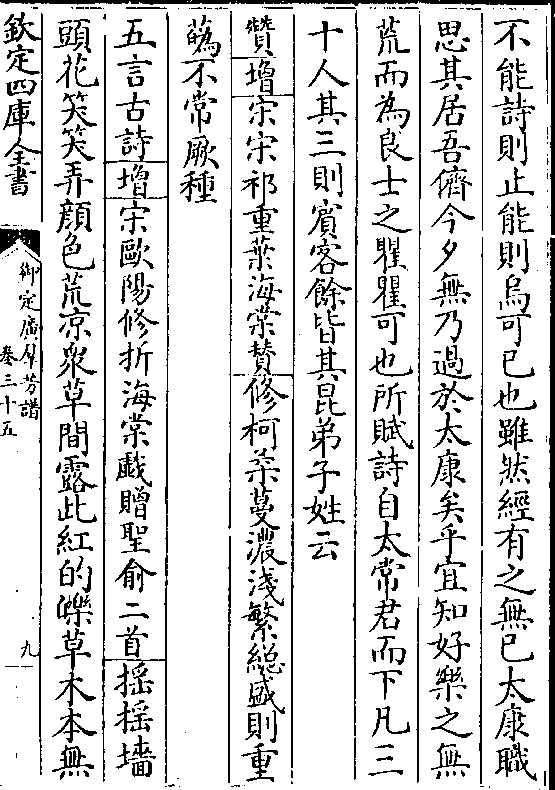 不能詩則止能則烏可已也雖然經有之無已太康職
思其居吾儕今夕無乃過於太康矣乎宜知好樂之無
荒而為良士之瞿瞿可也所賦詩自太常君而下凡三
十人其三則賓客餘皆其昆弟子姓云
贊增宋宋祁重葉海棠贊修柯柔蔓濃淺繁總盛則重
蘤不常厥種
五言古詩增宋歐陽修折海棠戲贈聖俞二首搖搖墻
頭花笑笑弄顔色荒凉衆草間露此紅的皪草木本無
欽定四庫全書
御定廣羣芳譜
卷三十五
九